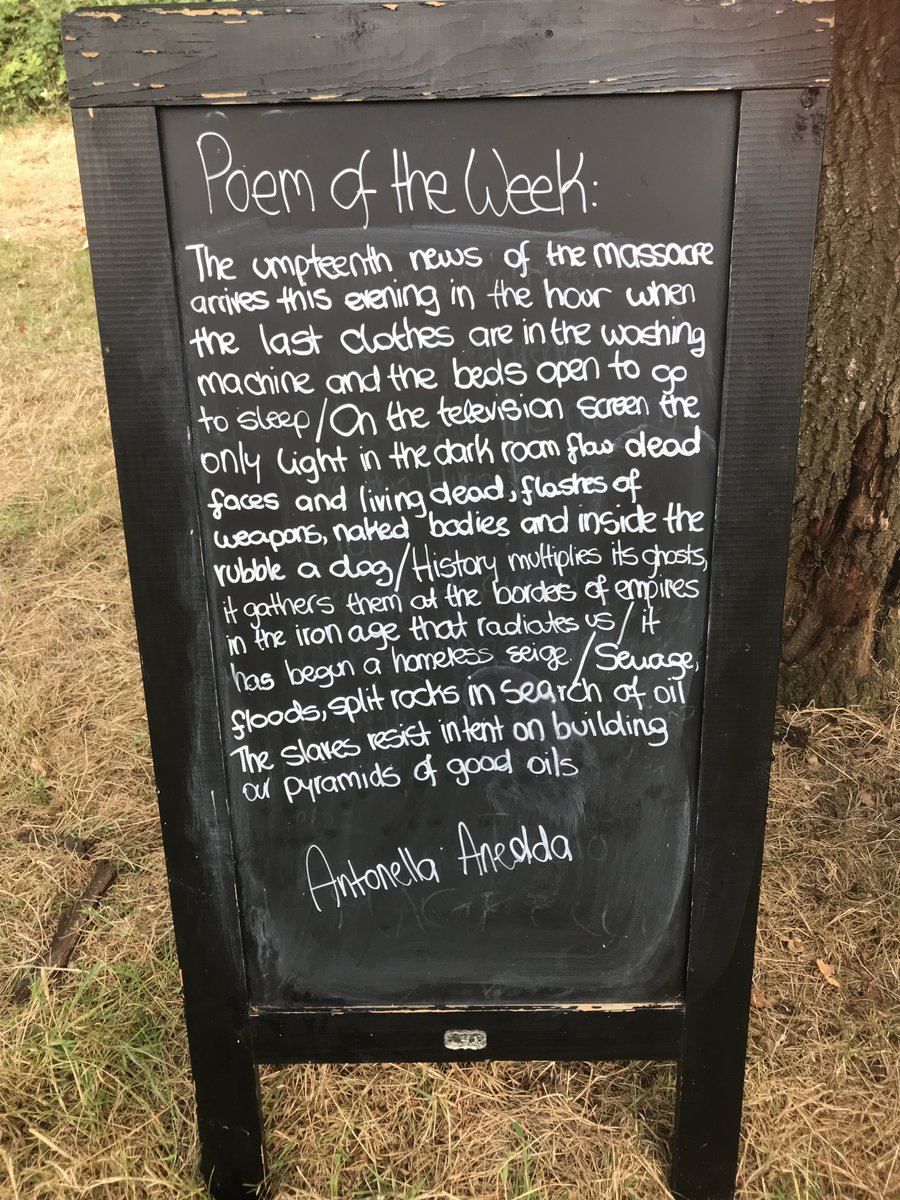 Poem of the Week:
The umpteenth news of the massacre
arrives this evening in the hour when
the last clothes are in the washing
machine and the beds open to go
to sleep/On the television screen the
only light in the dark room flow dead
faces and living dead, flashes of
weapons, naked bodies and inside the
rubble a dog/History multiplies its ghosts,
it gathers them at the borders of empires
in the iron age that radiates us/it
has begun a homeless seige./Sewage,
floods, split rocks in search of oil
The slaves resist intent on building
our pyramids of good oils
Antonella Anedda